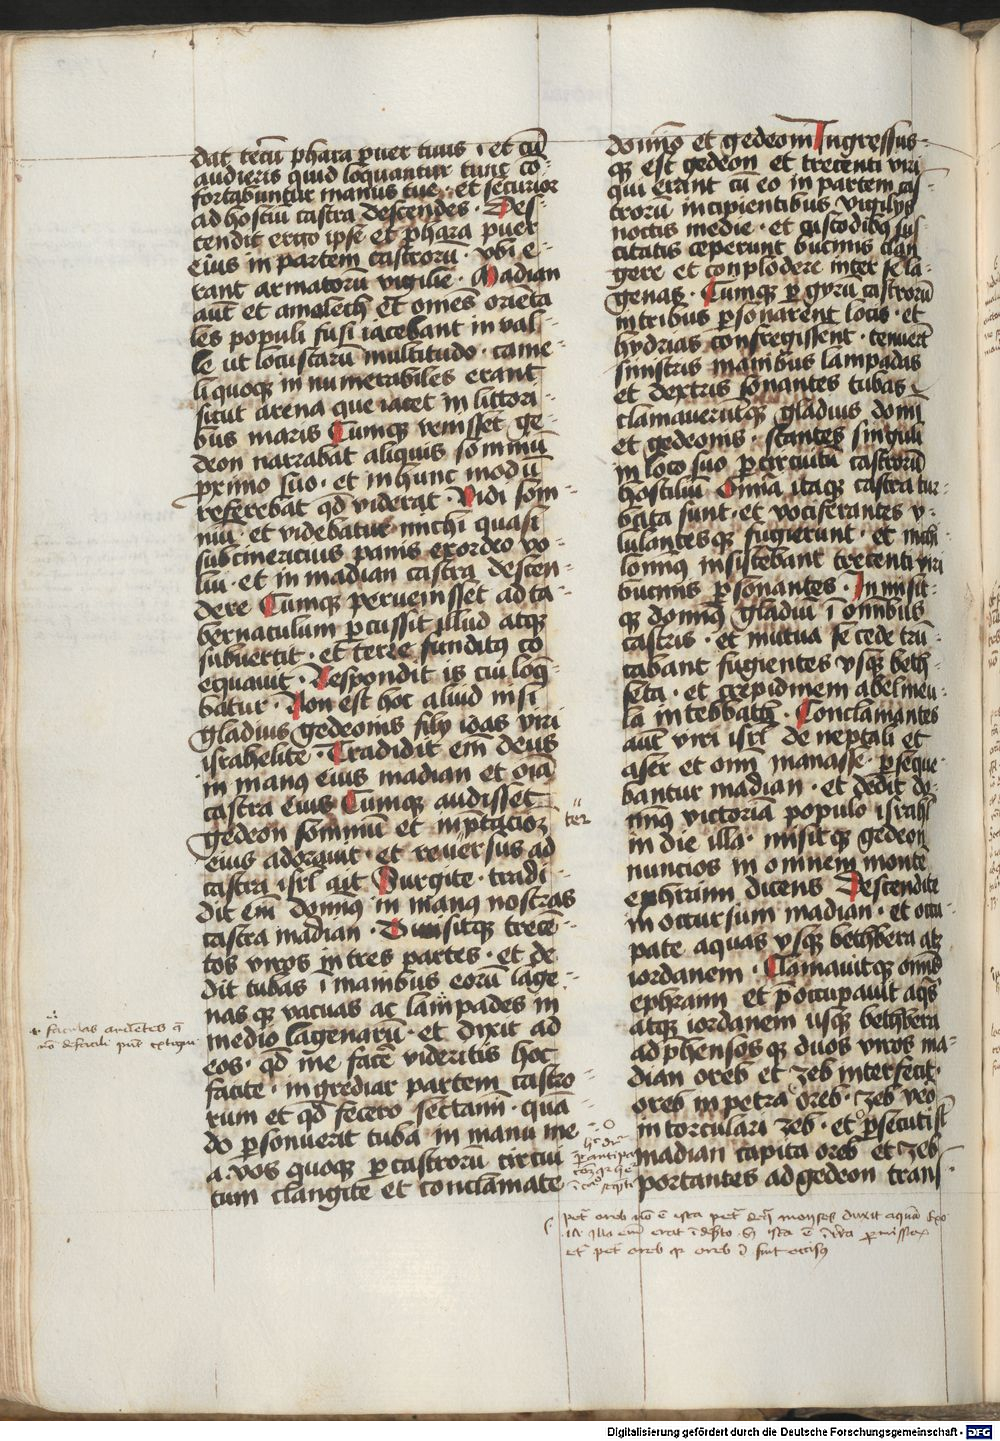 dat tecū phara puer tuus ı et cū
audieris quid loquantur tunc co-
fortabuntur manus tue · et securior
ad hostiū castra descendes · Des-
cendit ergo ipse et phara puer
eius in partem castrorū · vbi e-
rant armatorū vigilie · Madian
aūt et amalech et om̄es orienta
les populi fusi iacebant in val-
le ut locustarū multitudo · came-
li quoqȝ innumerabiles erant
sicut arena que iacet in littori-
bus maris Cumqȝ venisset ge-
deon narrabat aliquis sommū
pximo suo · et in hunc modū
referebat qd viderat Vidi som-
niū · et videbatur michi quasi
subcinericius panis ex ordeo vo-
lui · et in madian castra descen-
dere Cumqȝ peruenisset ad ta-
bernaculum pcussit illud atqȝ
subuertit · et terre funditus co
equauit · Respondit is cui loq̄-
batur · Non est hoc aliud nisi
gladius gedeonis filij ioas viri
israhelite · Tradidit em̄ deus
in manus eius madian et oīa
castra eius Cumqȝ audisset
gedeon somniū et inptacioȝ
eius adorauit · et reuersus ad
castra isrl ait Surgite · tradi-
dit em̄ domn⁹ in man⁹ nostras
castra madian · Diuisitqȝ trecē-
tos viros in tres partes · et de-
dit tubas ī manibus eorū lage-
nas qȝ vacuas ac lampades in
medio lagenarū · et dixit ad
eos · qd me facē videritis hoc
facite · ingrediar partem castro
rum et qd fecero sectami · quā
do psonuerit tuba in manu me
a · vos quoqȝ p castrorū circui
tum clangite et conclamate
ter
faculas ardētes
domīo et gedeoni Ingressus-
qȝ est gedeon et trecenti viri
qui erant cū eo in partem cas
trorū incipientibus vigilijs
noctis medie · et custodibȝ sus
citatis ceperunt bucinis clan
gere et conplodere inter se la-
genas · Cumqȝ p gyrū castrorū
in tribus psonarent locis · et
hydrias confregissent · tenuert
sinistris manibus lampadas
et dextris sonantes tubas
clamaueruntqȝ gladius domi
et gedeonis · stantes singuli
in loco suo p circuitū castrorū
hostiliū Omnia itaqȝ castra tur-
bata sunt · et vociferantes v-
lulantesqȝ fugierunt · et nichi
lomin⁹ insistebant trecenti viri
bucinis psonantes · In misit-
qȝ domn⁹ gladiū ī omnibus
castris · et mutua se cede trū-
cabant fugientes vsqȝ beth-
seta · et crepidinem abelmeu-
la in tebbath · Conclamantes
aūt viri isrl de neptali et
aser et omī manasse · pseque-
bantur madian · et dedit do-
min⁹ victoriā populo israhl
in die illa · misitqȝ gedeon
nuncios in omnem monte
ephraim dicens Descendite
in occursum madian · et occu
pate aquas vsqȝ bethbera atȝ
iordanem · Clamauitqȝ omīs
ephraim et p̄occupauit aqȝ
atqȝ iordanem usqȝ bethbera
adphensosqȝ duos viros ma-
dian oreb et zeb interfecit ·
oreb in petra oreb · zeb vero
in torculari zeb · et psecuti sī
madian capita oreb et zeb
portantes ad gedeon trans
petˢ oreb nō ē ista petˢ moyses duxit aquā Exo
illa em̄ erat ista ē
et petˢ oreb oreb sint occis⁹
Digitalisierung gefördert durch die Deutsche Forschungsgemeinschaft - DFG